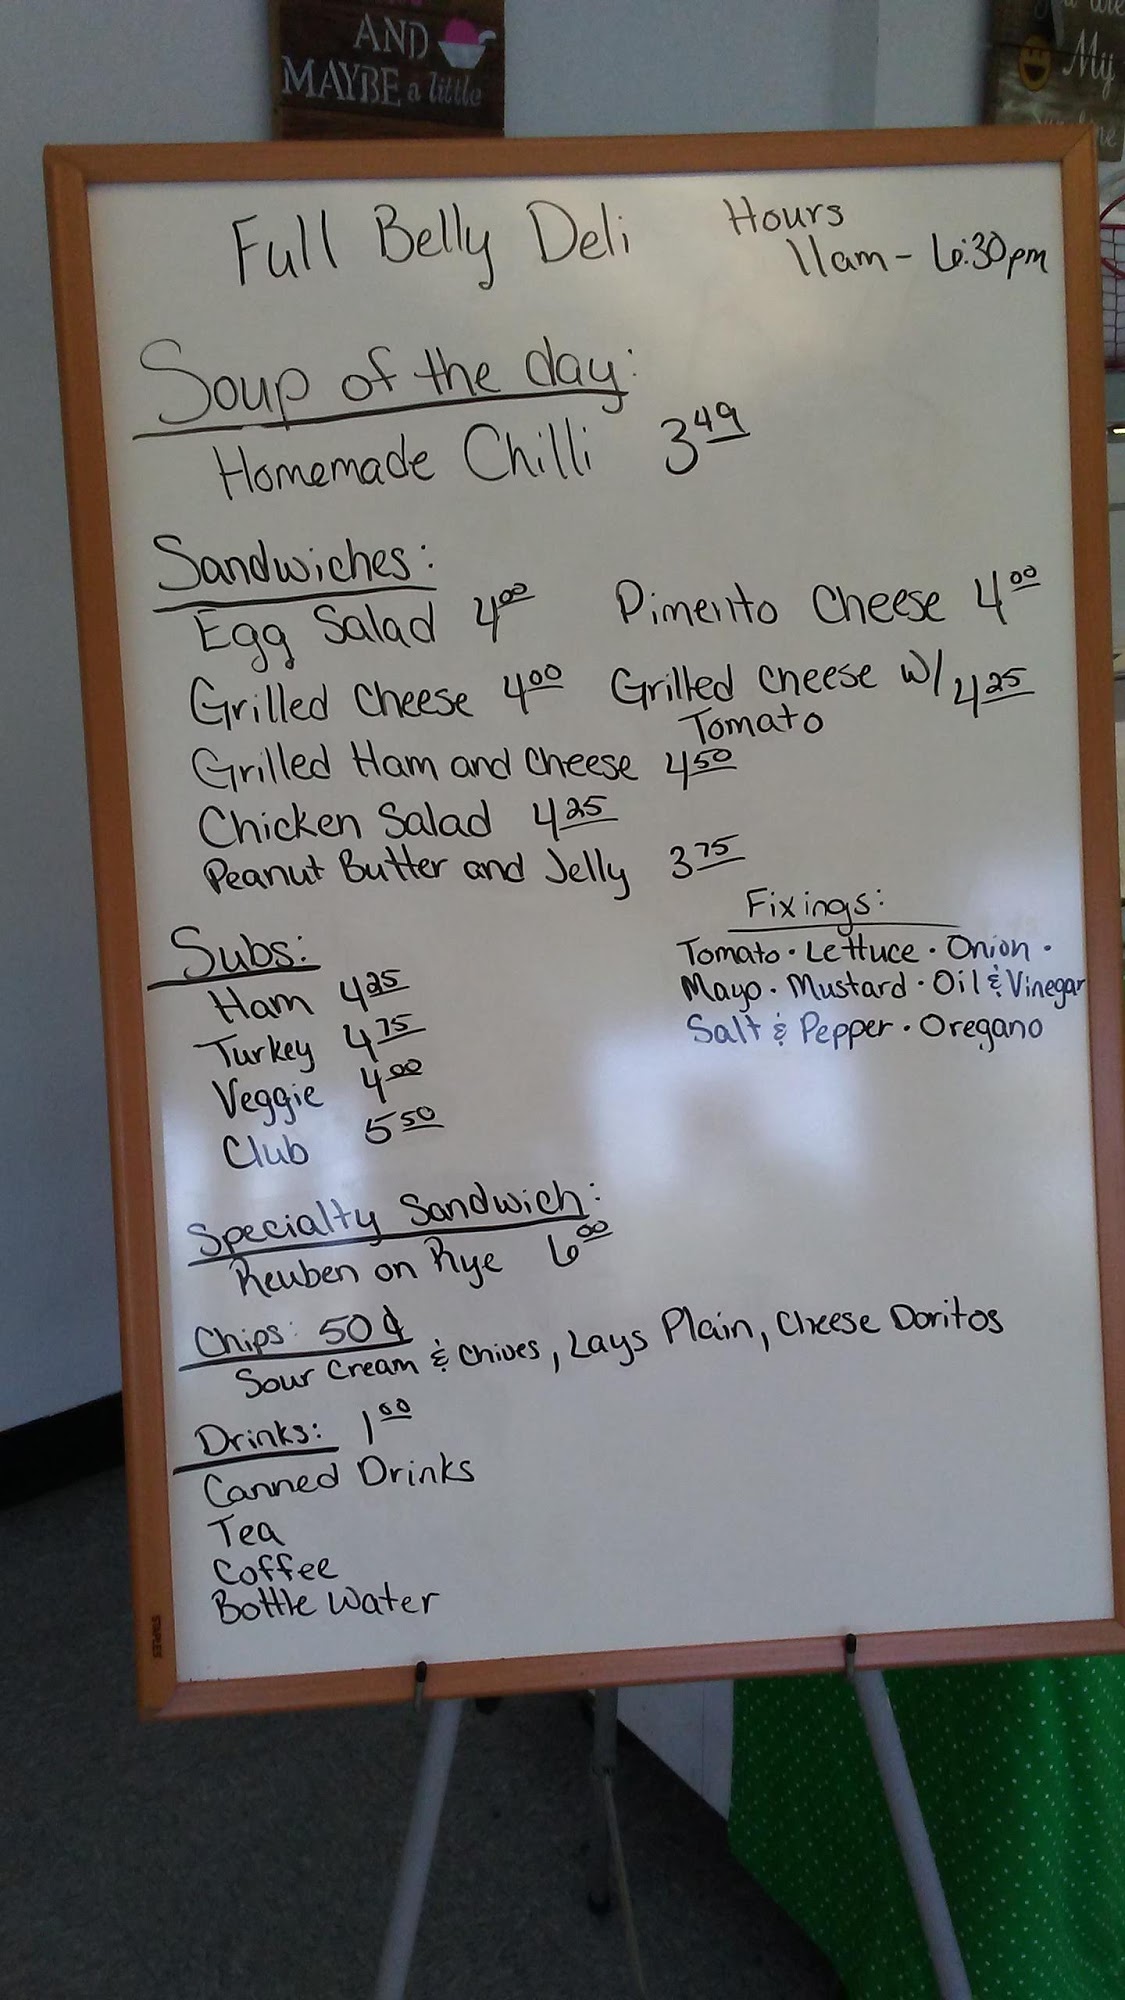 AND
MAYBE a little
My
Full Belly Deli
Hours
11am - 6:30pm
Soup of the day:
Homemade Chilli 3 49
Sandwiches:
Egg Salad 4 00 Pimento Cheese 4 00
Grilled Cheese 4 00 Grilled Cheese w/ 4 25
Tomato
Grilled Ham and Cheese 4 50
Chicken Salad 4 25
Peanut Butter and Jelly 3 75
Fixings:
Tomato · Lettuce · Onion ·
Mayo · Mustard · Oil & Vinegar
Salt & Pepper · Oregano
Subs:
Ham 4 25
Turkey 4 75
Veggie 4 00
Club 5 50
Specialty Sandwich:
Reuben on Rye 6 00
Chips: 50¢
Sour Cream & Chives, Lays Plain, Cheese Doritos
Drinks: 1 00
Canned Drinks
Tea
Coffee
Bottle Water
STAPLES